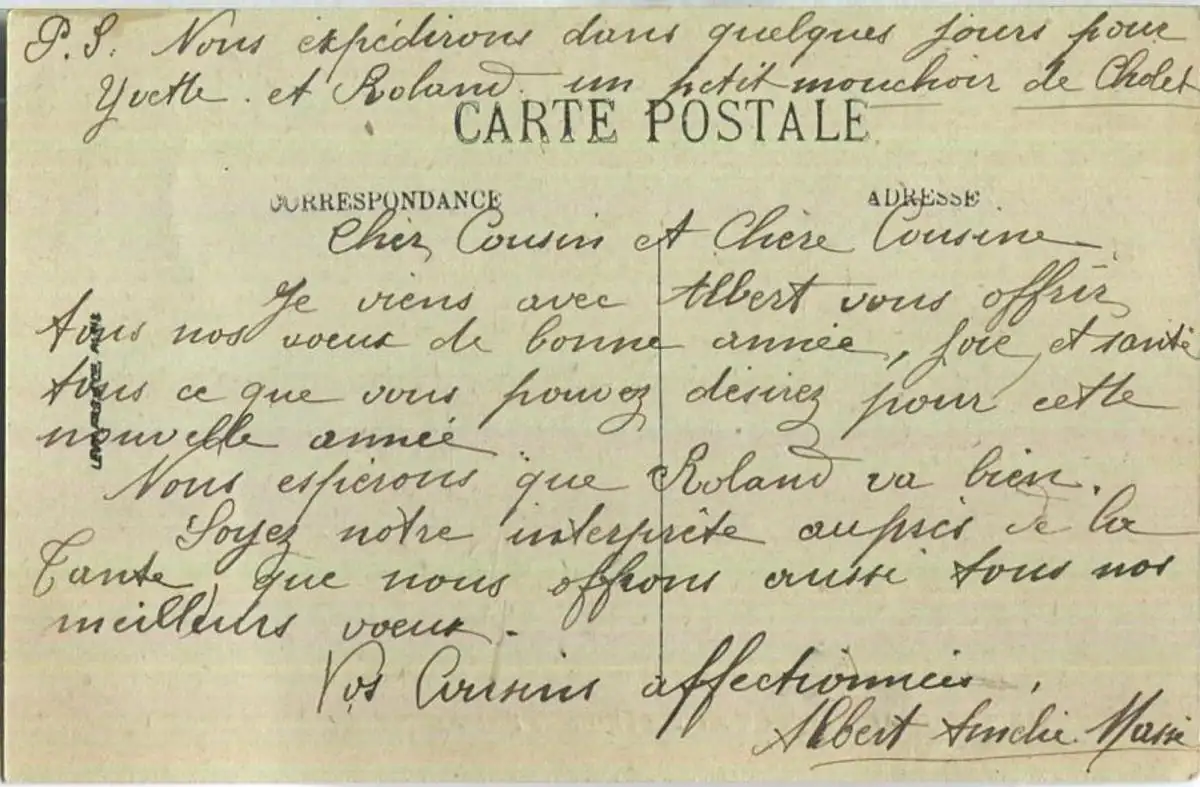 P.S. Nous expédirons dans quelques jours pour
Yvette et Roland un petit mouchoir de Cholet
CARTE POSTALE
CORRESPONDANCE
ADRESSE
Cher Cousin et Chère Cousine
Je viens avec Albert vous offrir
tous nos voeux de bonne année, joie et santé
tous ce que vous pouvez désirez pour cette
nouvelle année
Nous espérons que Roland va bien.
Soyez notre interprête auprès de la
Tante, que nous offrons aussi tous nos
meilleurs voeux.
Vos Cousins affectionnés,
Albert Amélie